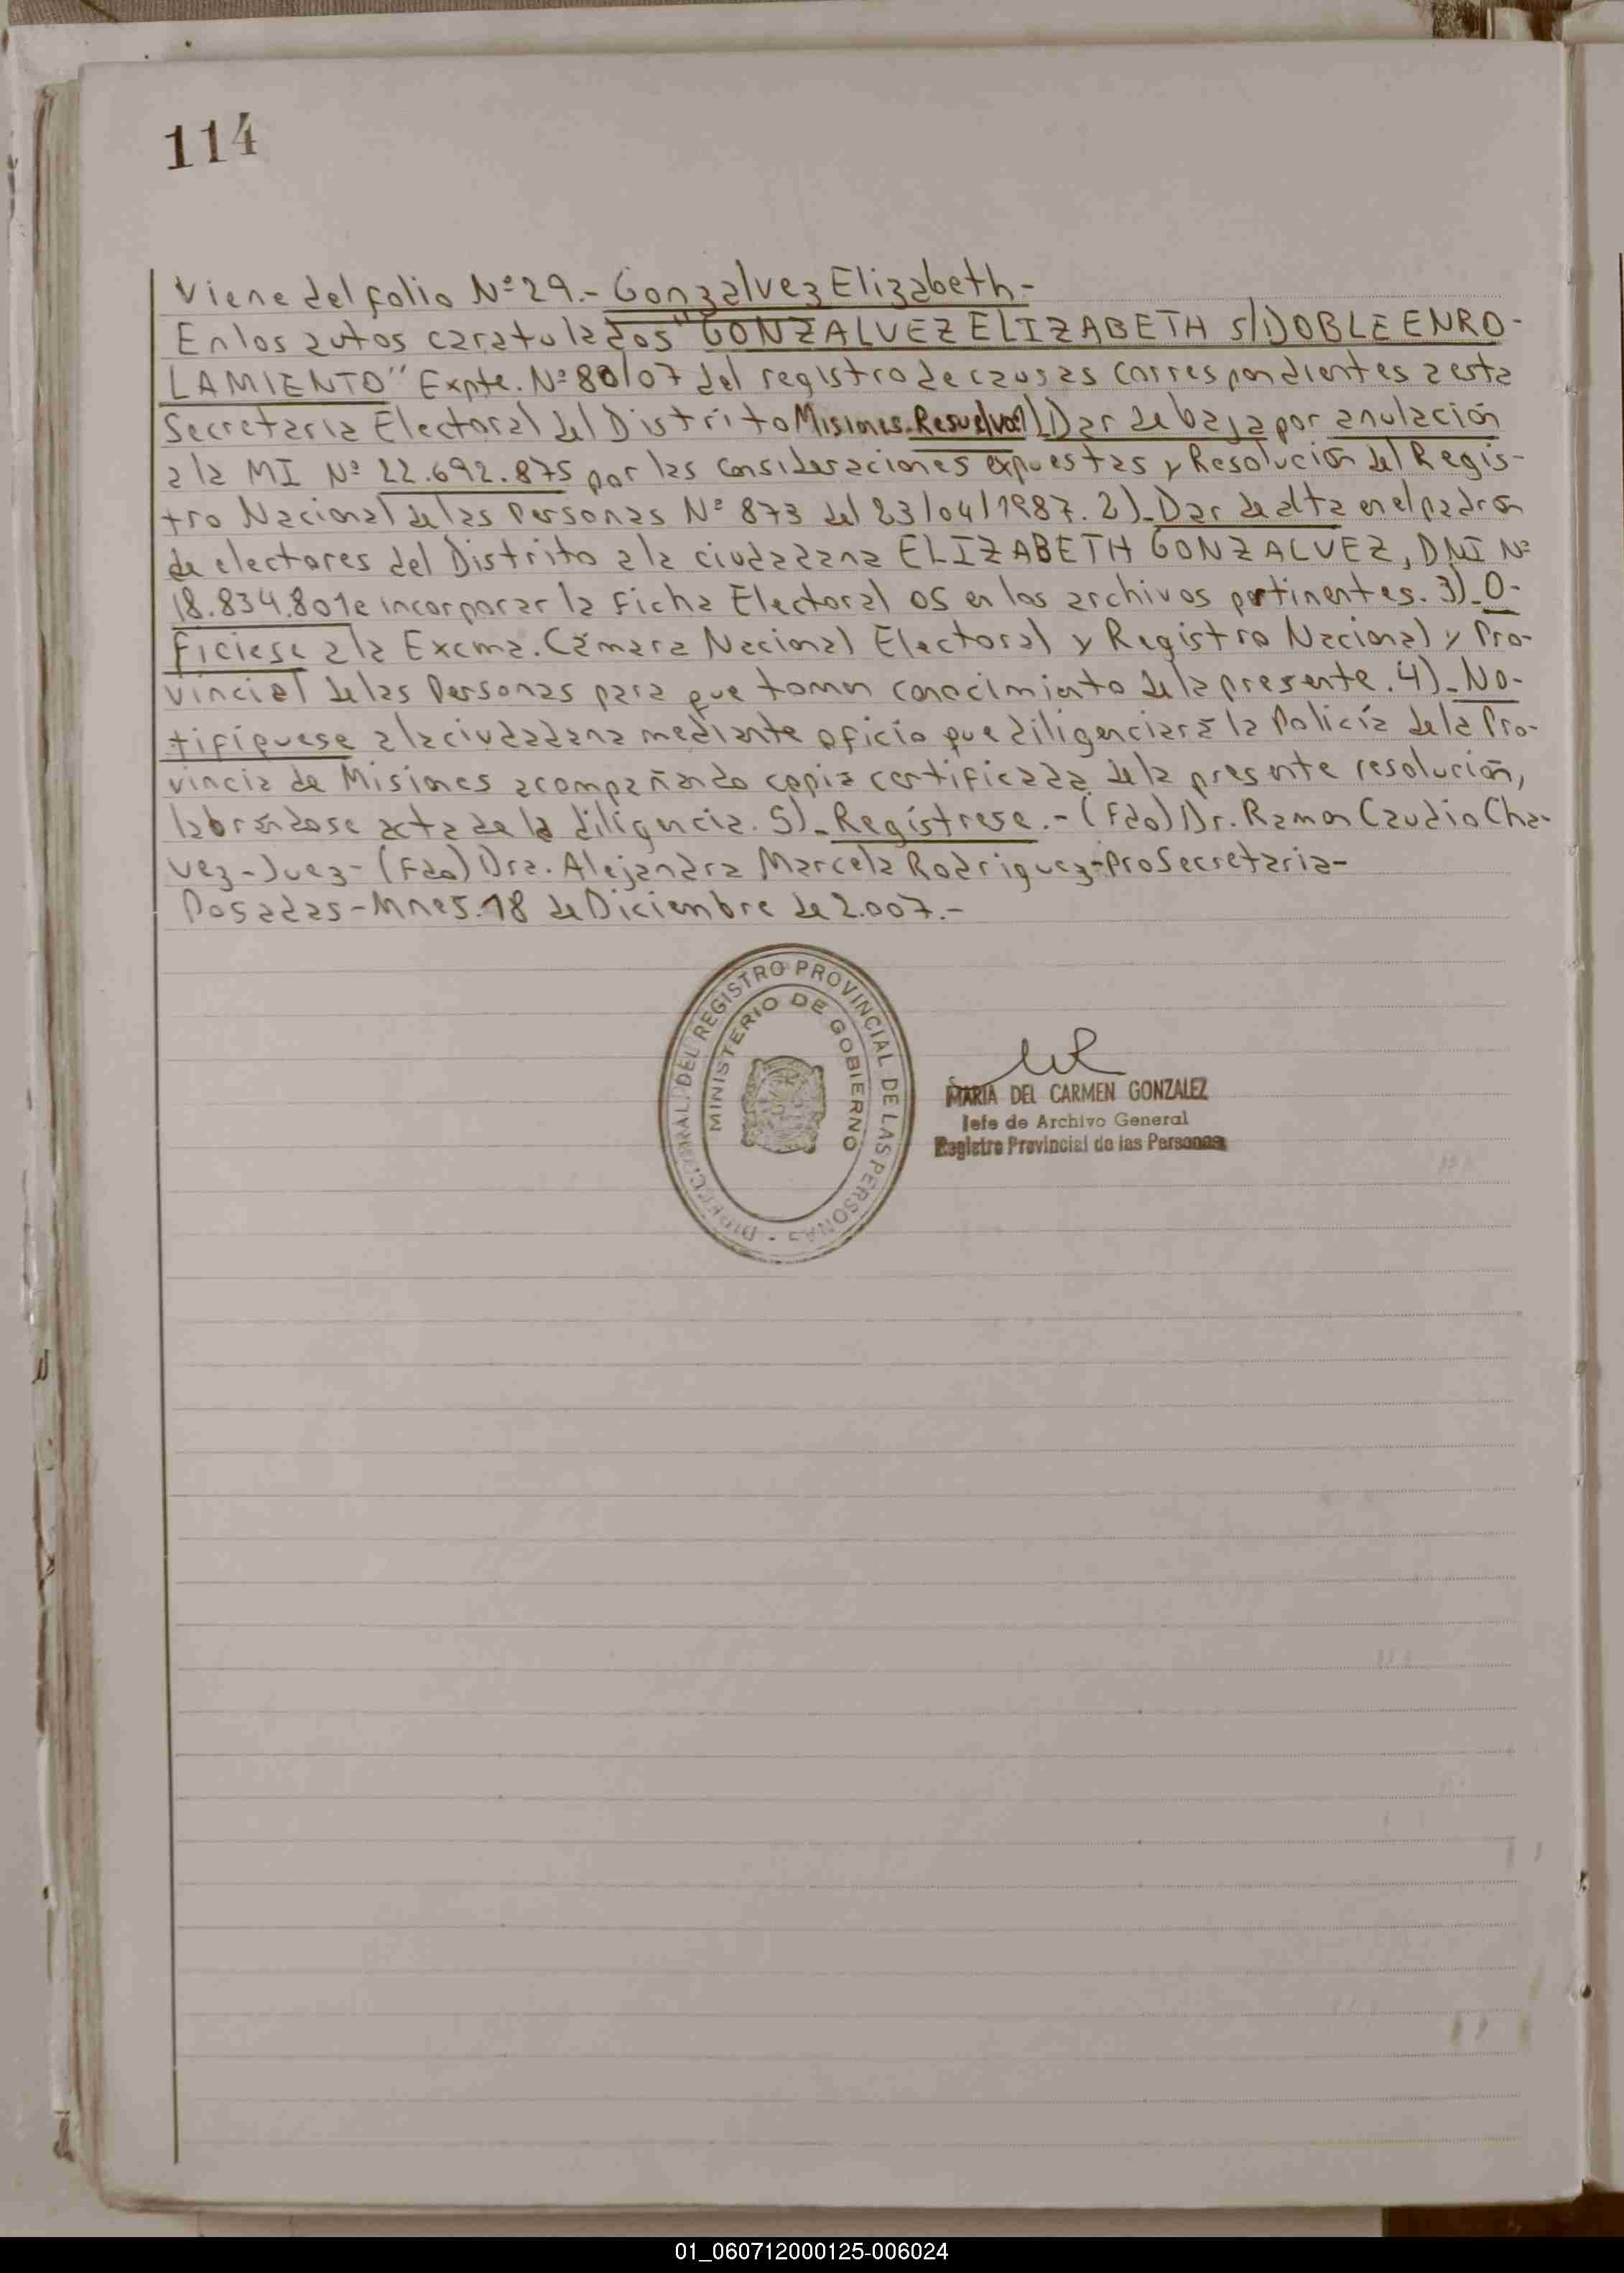 114
Viene del folio Nº 29.- Gonzalvez Elizabeth.-
En los autos caratulados "GONZALVEZ ELIZABETH S/DOBLE ENRO-
LAMIENTO" Expte. Nº 80/07 del registro de causas correspondientes a esta
Secretaria Electoral del Distrito Misiones. Resuelvo: 1) Dar de baja por anulación
a la MI Nº 22.692.875 por las consideraciones expuestas y Resolución del Regis-
tro Nacional de las Personas Nº 873 del 23/04/1987. 2)_Dar de alta en el padron
de electores del Distrito a la ciudadana ELIZABETH GONZALVEZ, DNI Nº
18.834.801 e incorporar la Ficha Electoral OS en los archivos pertinentes. 3)_O-
ficiese a la Excma. Cámara Nacional Electoral y Registro Nacional y Pro-
vincial de las Personas para que tomen conocimiento de la presente. 4)_No-
tifíquese a la ciudadana mediante oficio que diligenciará la Policía de la Pro-
vincia de Misiones acompañando copia certificada de la presente resolución,
labrándose acta de la diligencia. 5)_Regístrese.- (Fdo) Dr. Ramon Caudio Cha-
vez-Juez- (Fdo) Dra. Alejandra Marcela Rodriguez-ProSecretaria-
Posadas-Mnes. 18 de Diciembre de 2.007.-
DIRECC. GRAL. DEL REGISTRO PROVINCIAL DE LAS PERSONAS
MINISTERIO DE GOBIERNO
MARIA DEL CARMEN GONZALEZ
Jefe de Archivo General
Registro Provincial de las Personas
01_060712000125-006024